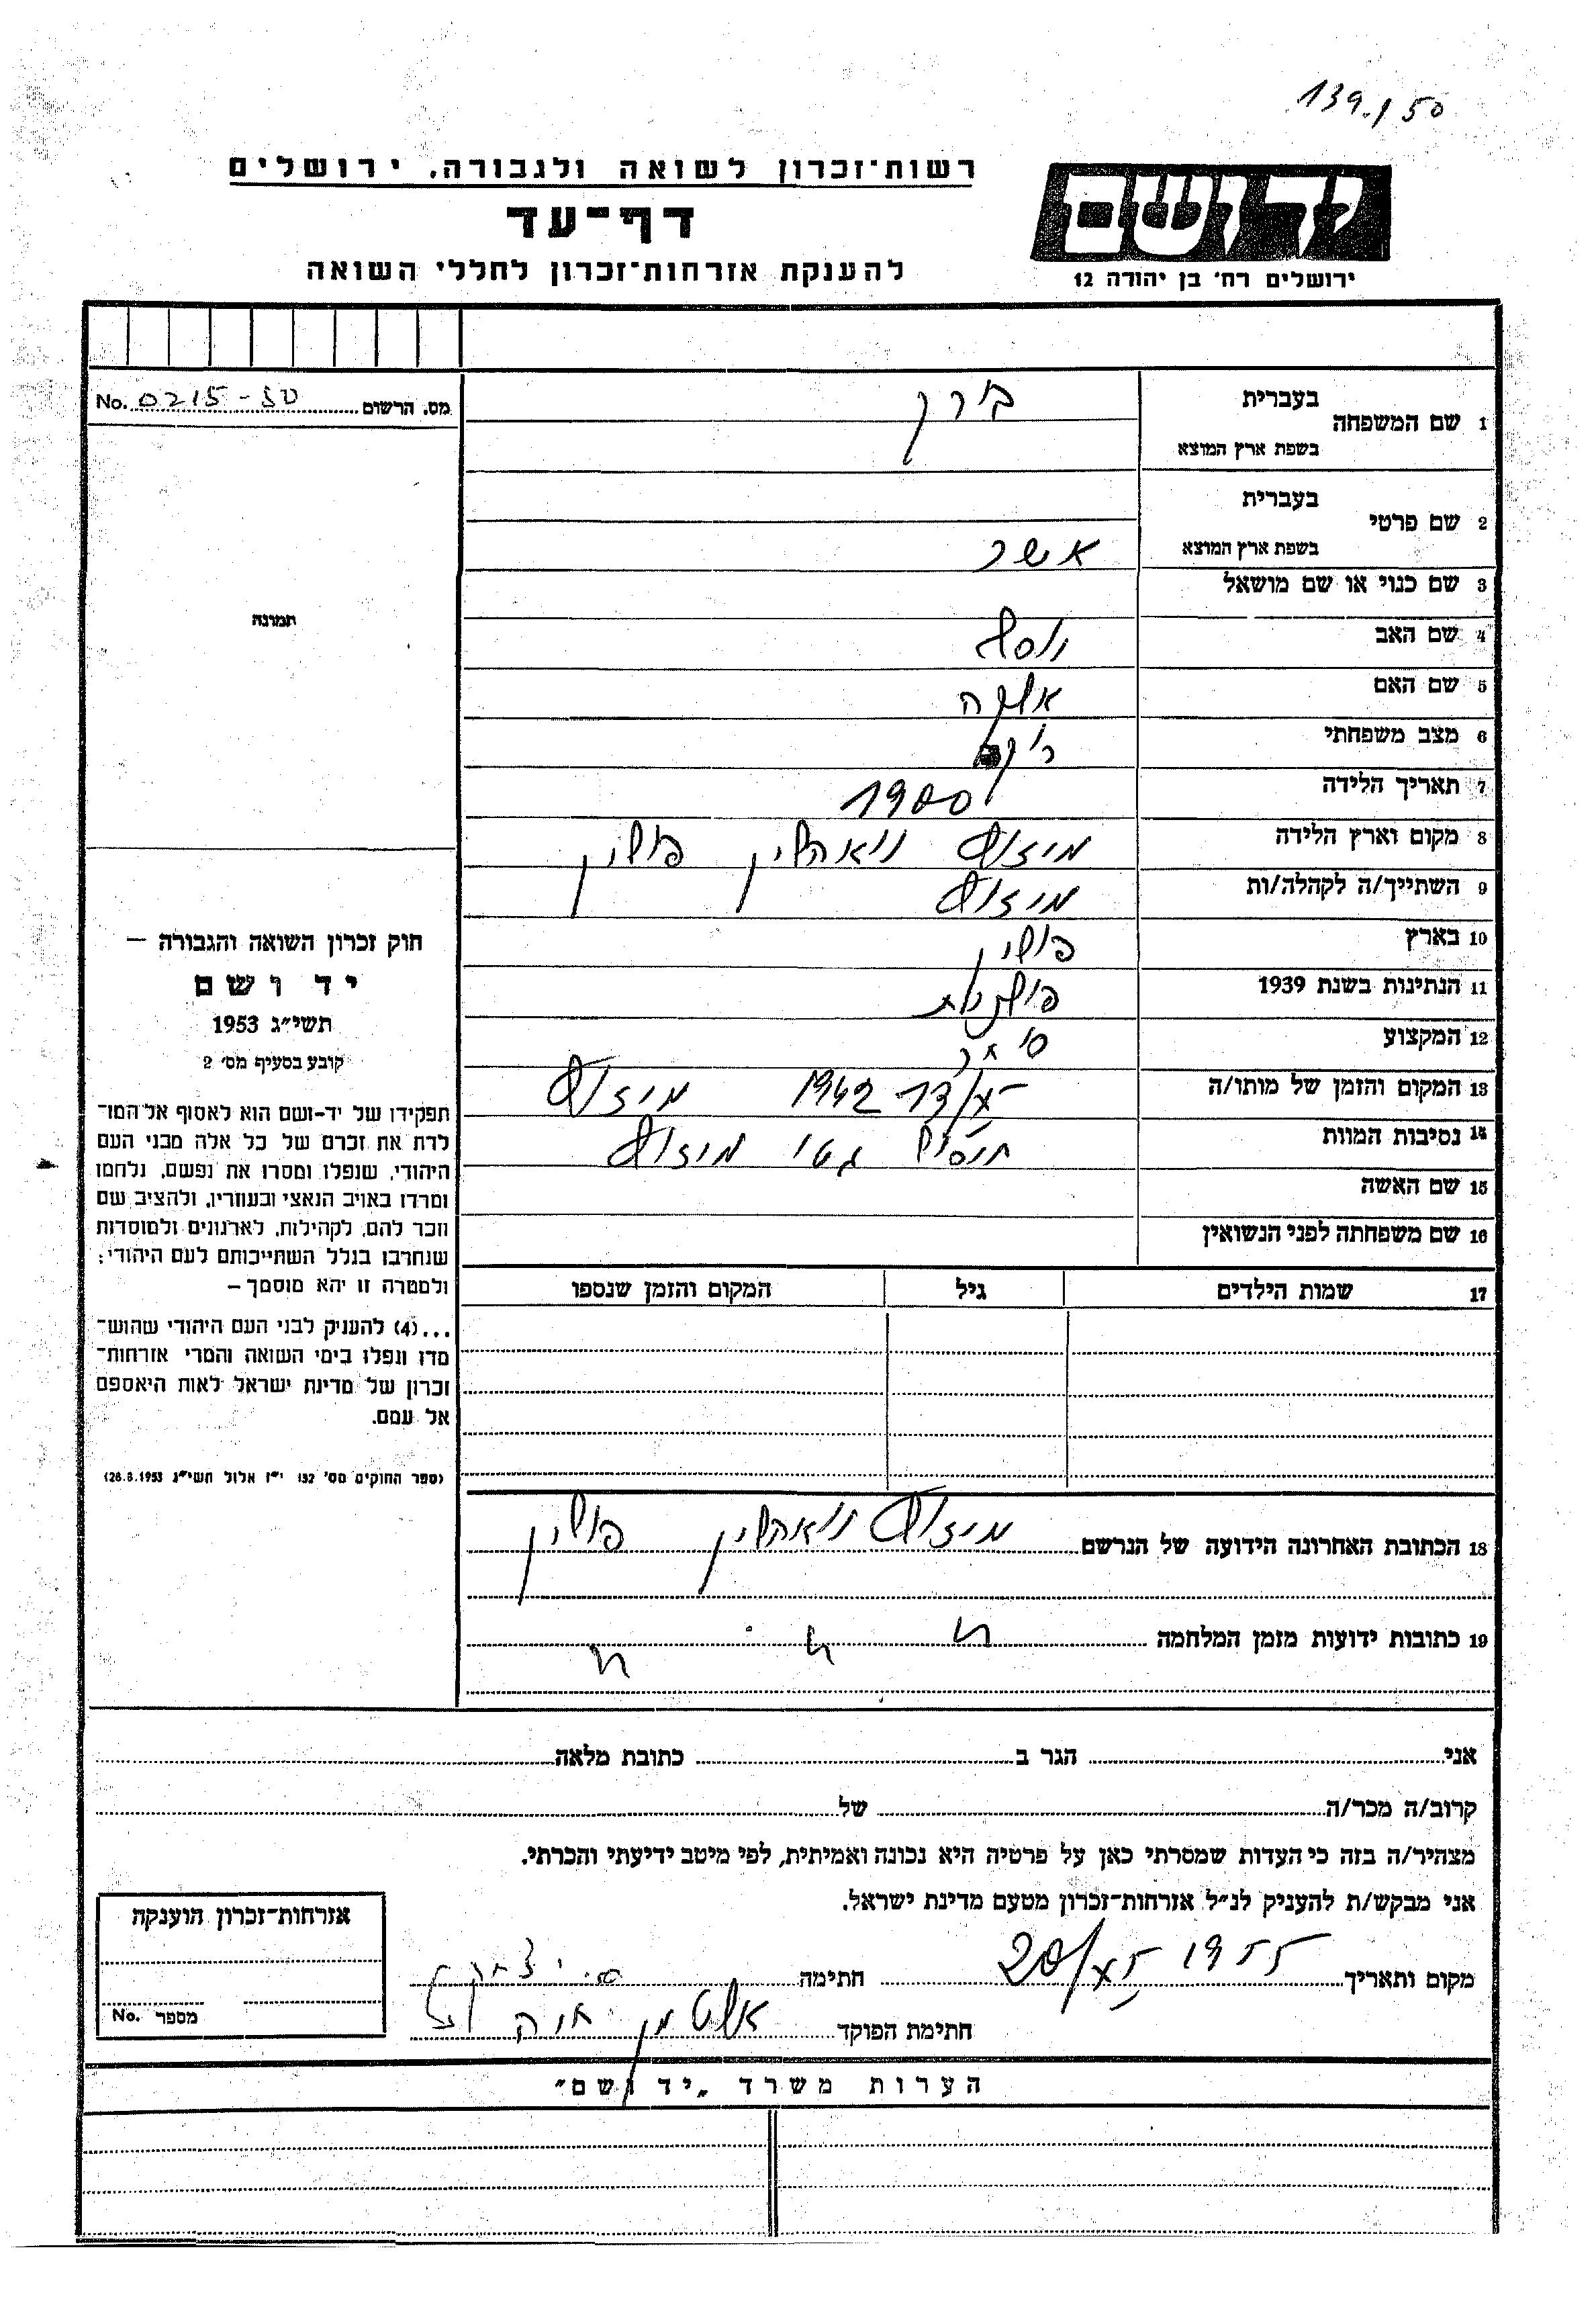 139.1 50
רשות־זכרון לשואה ולגבורה. ירושלים
דף־עד
להענקת אזרחות־זכרון לחללי השואה
יד ושם
ירושלים רח׳ בן יהודה 12
מס. הרשום No. 0215-50
תמונה
1 שם המשפחה
בעברית בורק
בשפת ארץ המוצא
2 שם פרטי
בעברית
בשפת ארץ המוצא אשר
3 שם כנוי או שם מושאל
4 שם האב יוסף
5 שם האם
6 מצב משפחתי
7 תאריך הלידה 1900
8 מקום וארץ הלידה מיזוץ וואהלין פולין
9 השתייך/ה לקהלה/ות מיזוץ
10 בארץ פולין
11 הנתינות בשנת 1939 פולנית
12 המקצוע סוחר
13 המקום והזמן של מותו/ה 1942 מיזוץ
14 נסיבות המוות חיסול גטו מיזוץ
15 שם האשה
16 שם משפחתה לפני הנשואין
17 שמות הילדים גיל המקום והזמן שנספו
18 הכתובת האחרונה הידועה של הנרשם מיזוץ וואהלין פולין
19 כתובות ידועות מזמן המלחמה " " "
חוק זכרון השואה והגבורה —
יד ושם
תשי״ג 1953
קובע בסעיף מס׳ 2
תפקידו של יד-ושם הוא לאסוף אל המו־
לדת את זכרם של כל אלה מבני העם
היהודי, שנפלו ומסרו את נפשם, נלחמו
ומרדו באויב הנאצי ובעוזריו, ולהציב שם
וזכר להם, לקהילות, לארגונים ולמוסדות
שנחרבו בגלל השתייכותם לעם היהודי;
ולמטרה זו יהא מוסמך —
...(4) להעניק לבני העם היהודי שהוש־
מדו ונפלו בימי השואה והמרי אזרחות־
זכרון של מדינת ישראל לאות היאספם
אל עמם.
(ספר החוקים מס׳ 132 י״ז אלול תשי״ג 28.8.1953)
אני הגר ב כתובת מלאה
קרוב/ה מכר/ה של
מצהיר/ה בזה כי העדות שמסרתי כאן על פרטיה היא נכונה ואמיתית, לפי מיטב ידיעתי והכרתי.
אני מבקש/ת להעניק לנ״ל אזרחות־זכרון מטעם מדינת ישראל.
מקום ותאריך 1955 חתימה
חתימת הפוקד אלטמן חיה
אזרחות־זכרון הוענקה
מספר No.
הערות משרד „יד ושם״